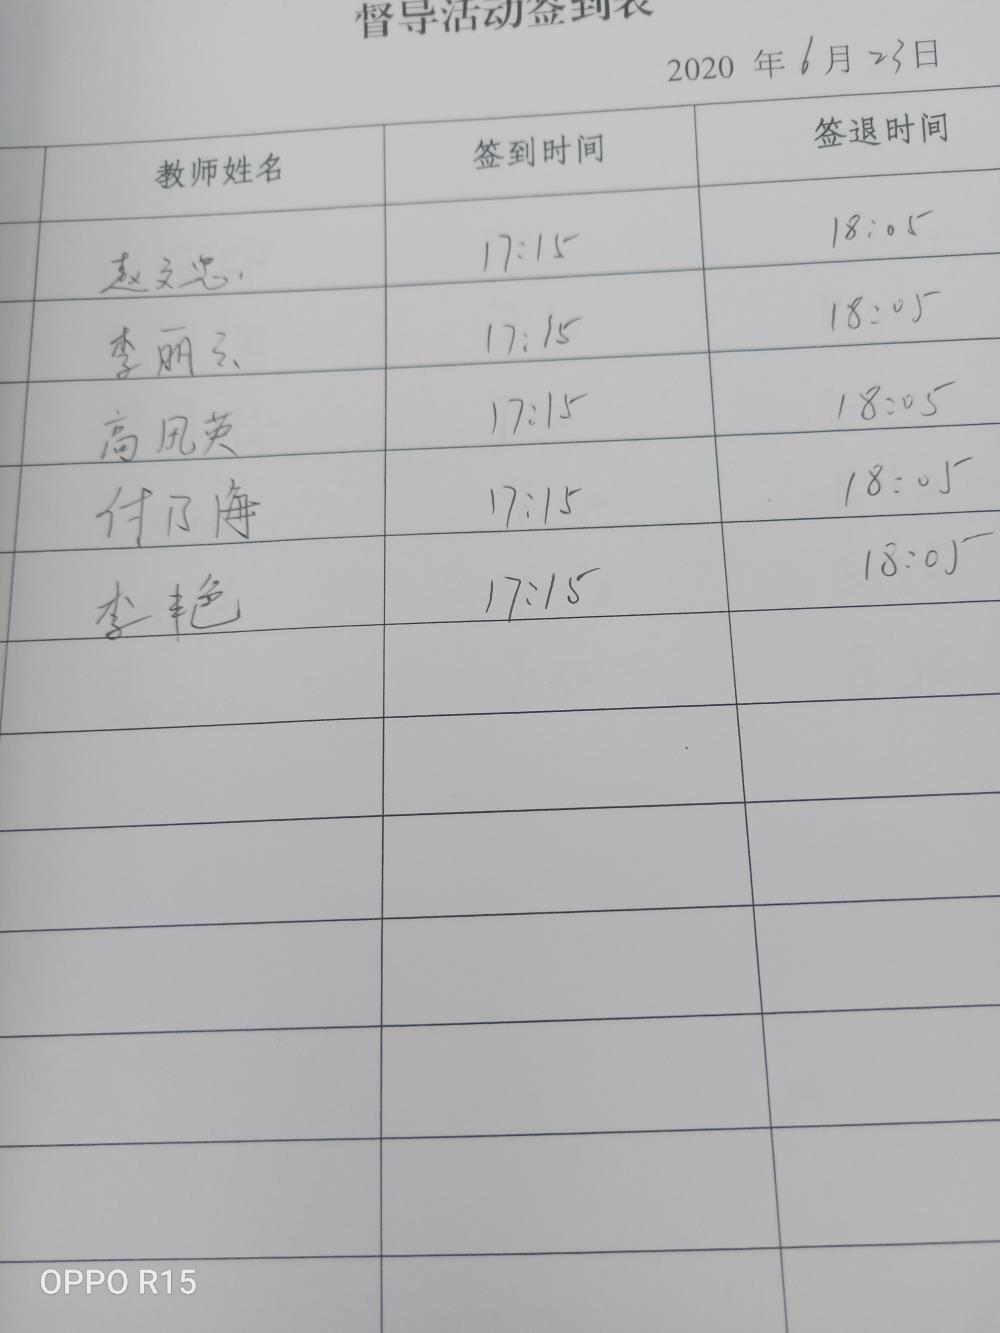 督导活动签到表
2020 年 6 月 23 日
教师姓名 签到时间 签退时间
赵文忠 17:15 18:05
李丽云 17:15 18:05
高凤英 17:15 18:05
付乃海 17:15 18:05
李艳 17:15 18:05
OPPO R15